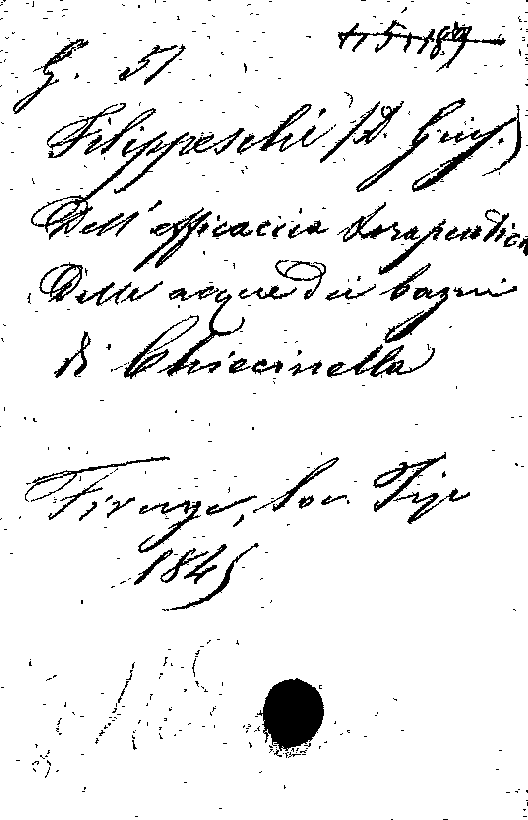 G. 51
Filippeschi (D. Gius.)
Dell' efficacia terapeutica
Delle acque dei bagni
di Chiecinella
Firenze, Soc. Tip
1845